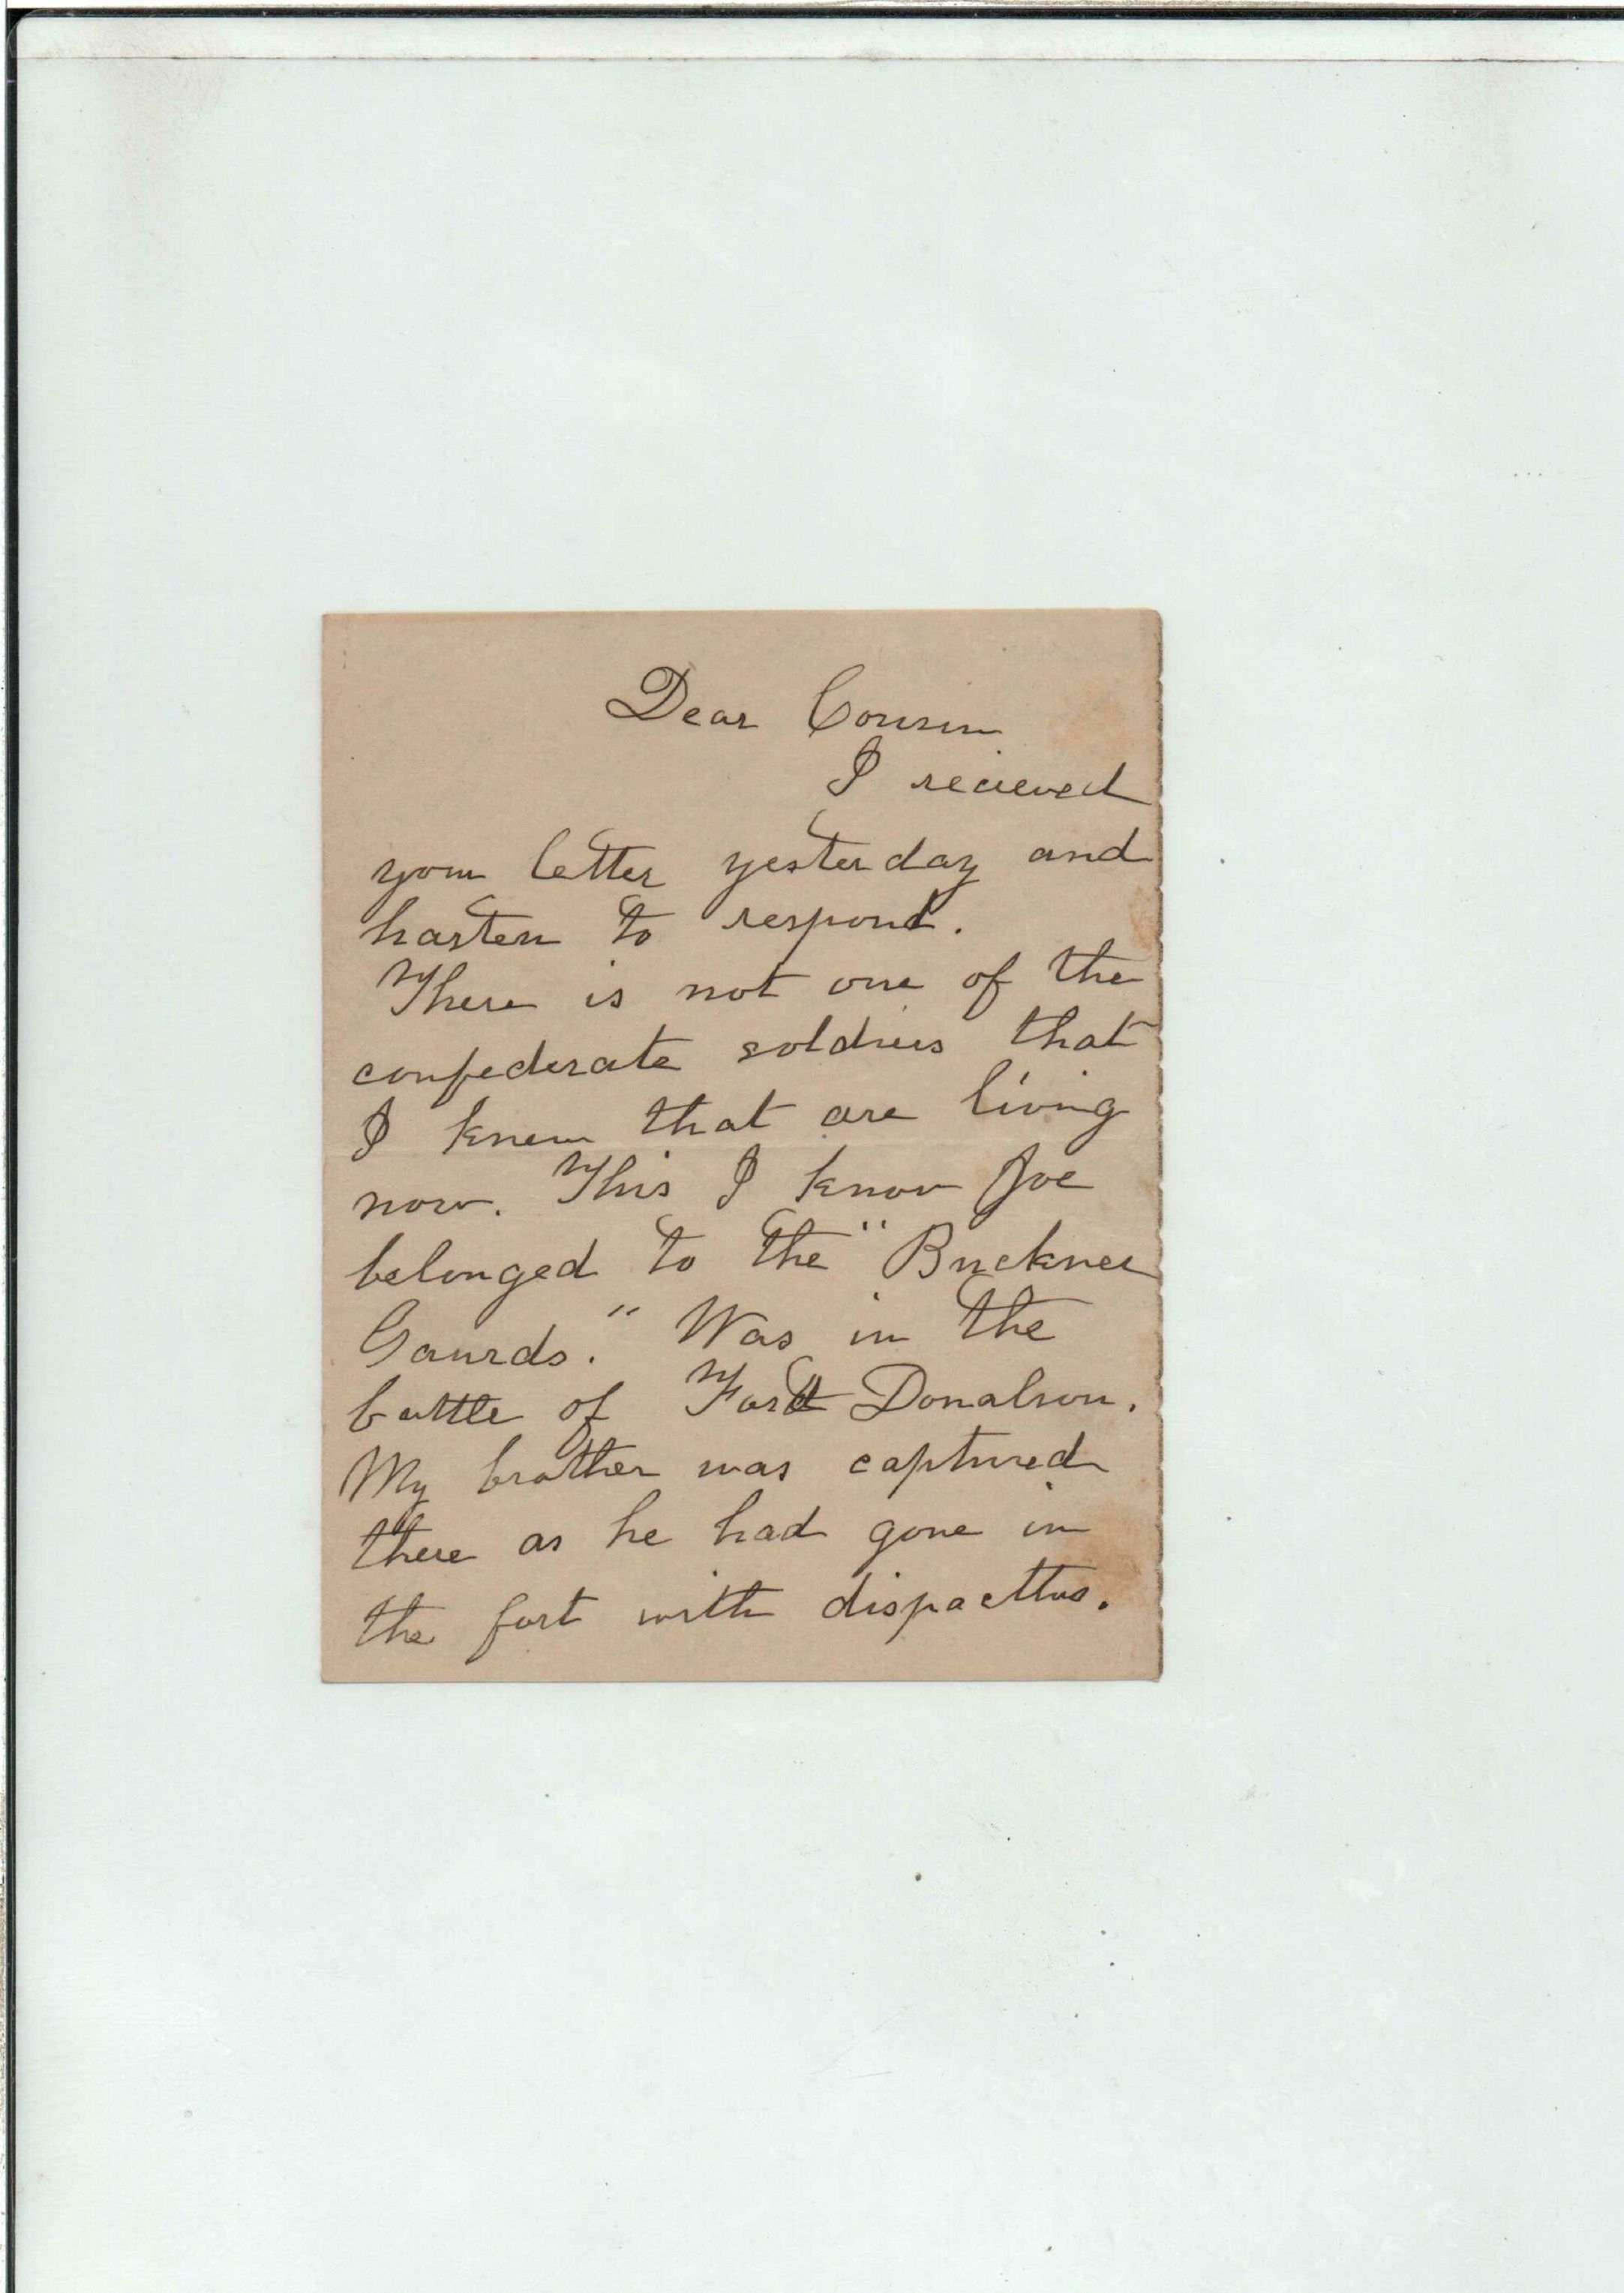 Dear Cousin
I recieved
your letter yesterday and
hasten to respond.
There is not one of the
confederate soldiers that
I knew that are living
now. This I know Joe
belonged to the "Buckner
Gaurds." Was in the
battle of Fort Donalson.
My brother was captured
there as he had gone in
the fort with dispactches.